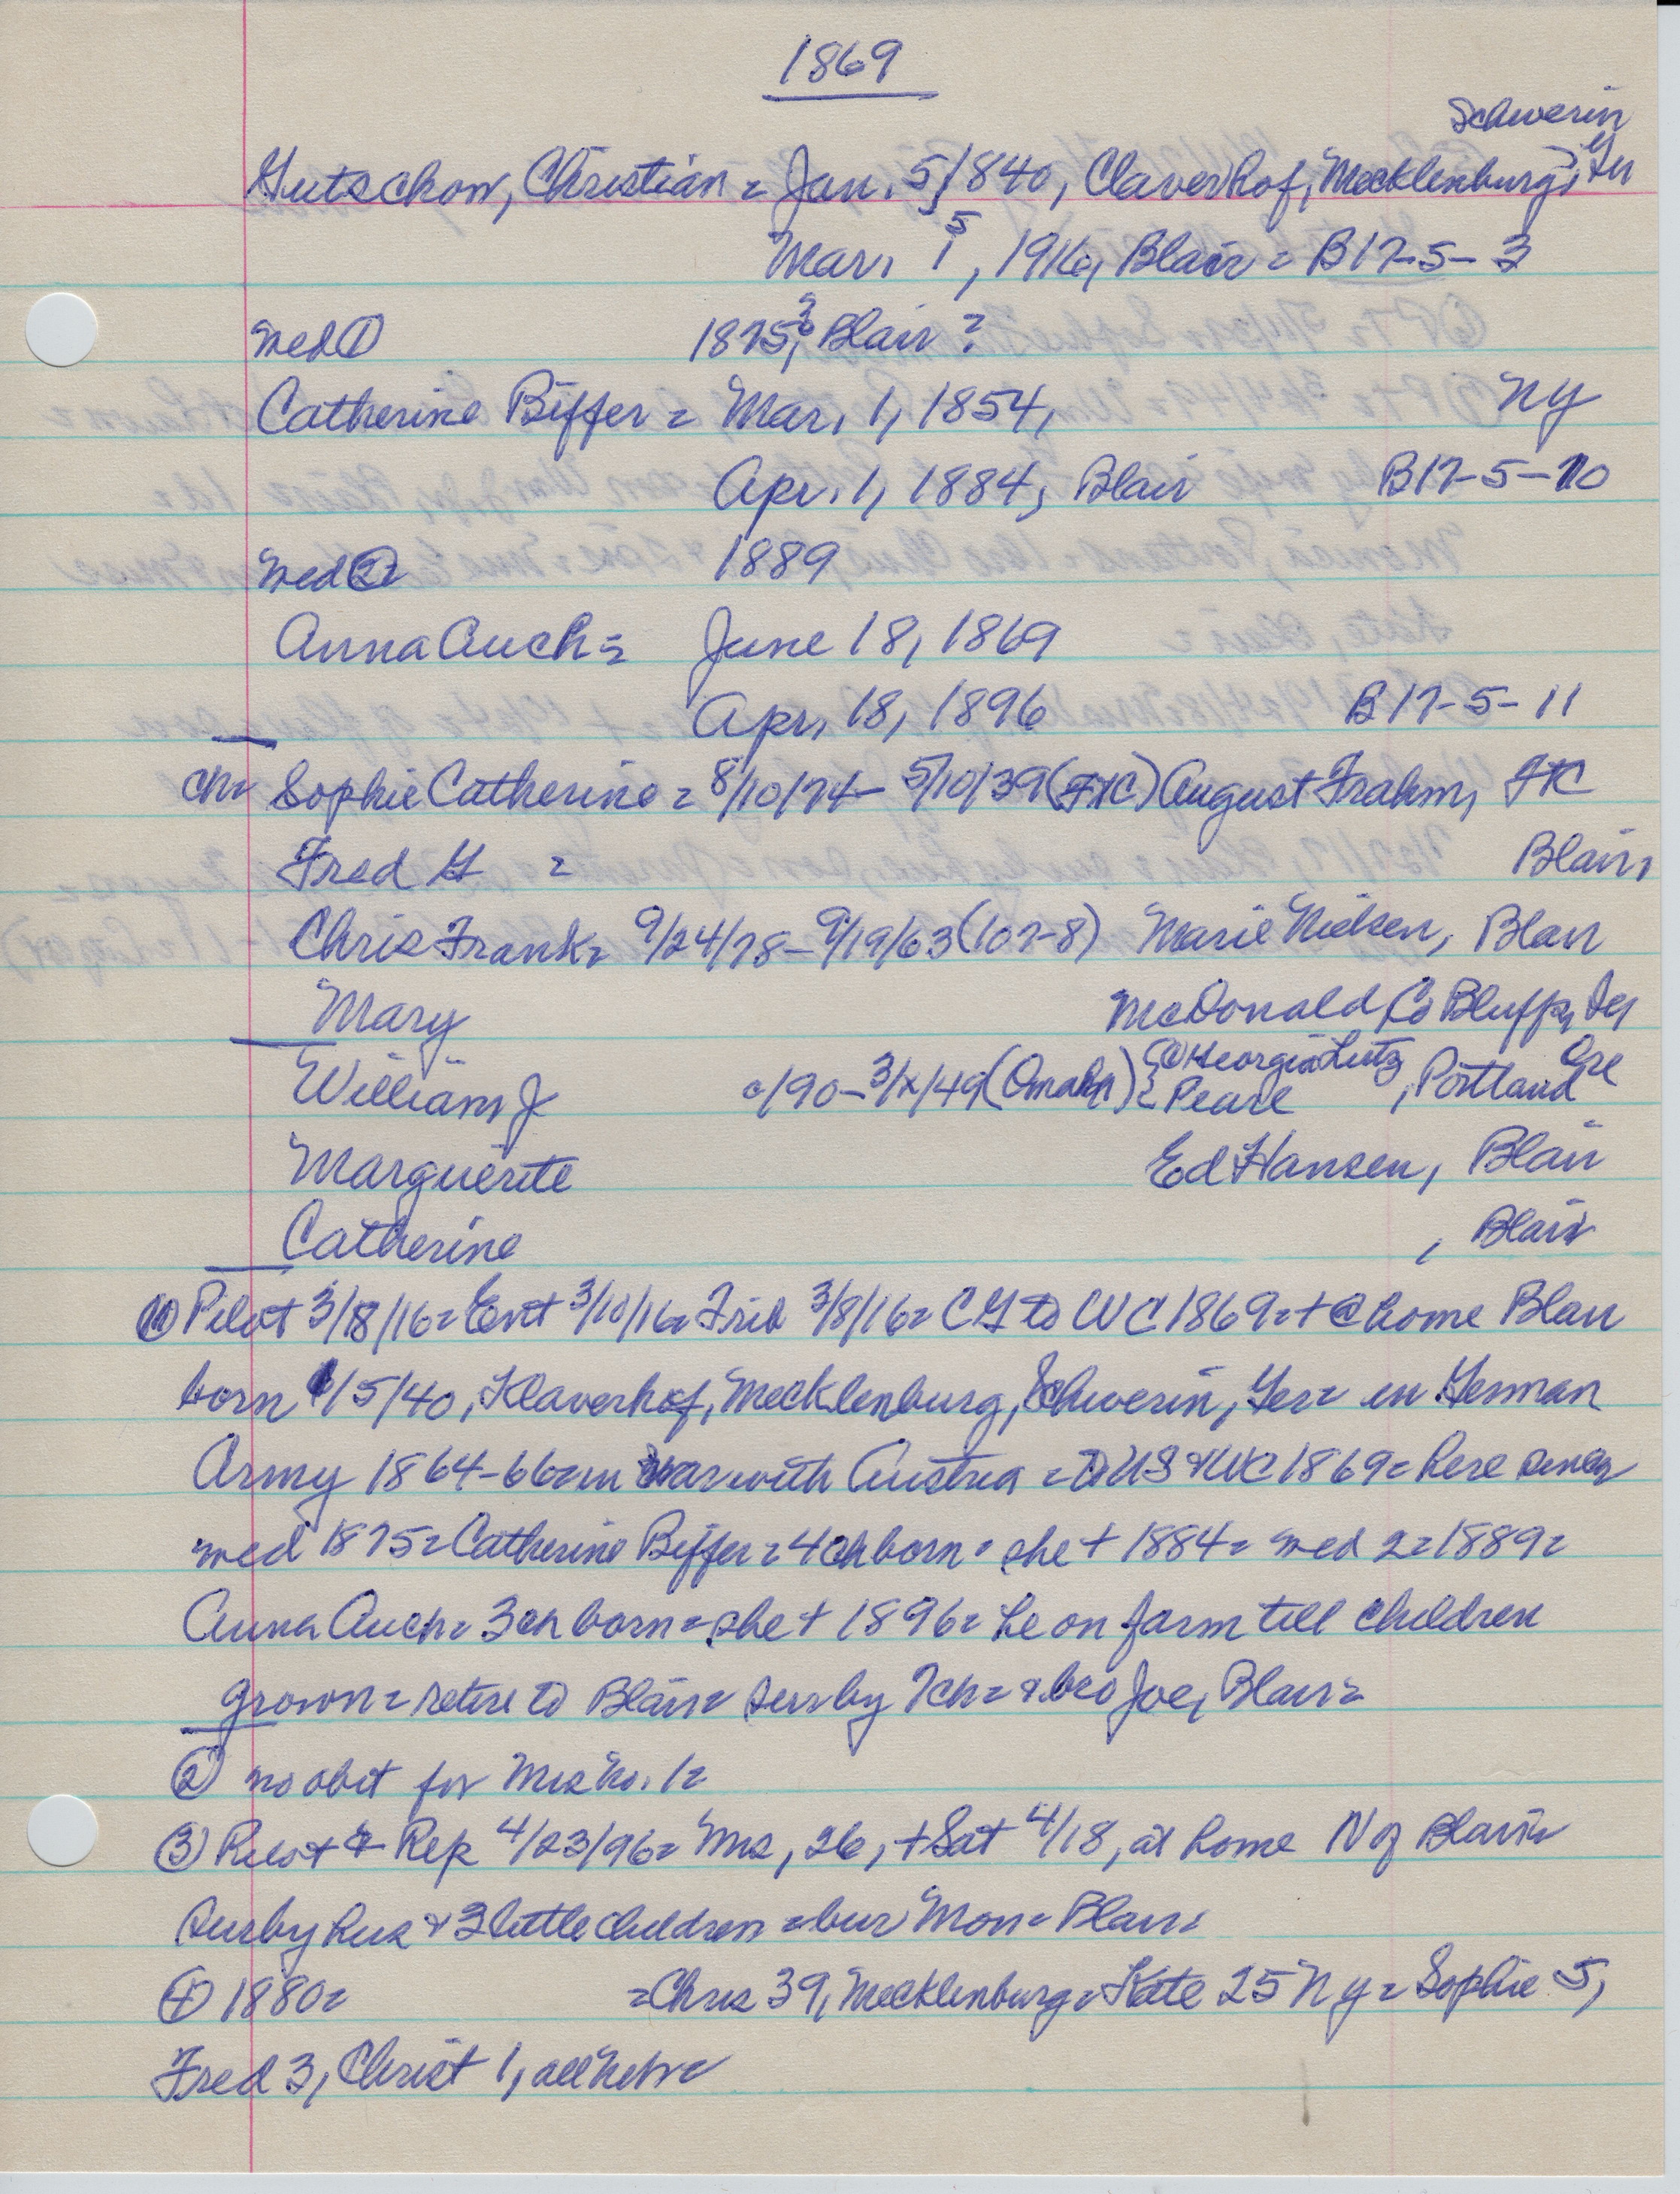 1869
Schwerin
Gutschow, Christian = Jan. 5, 1840, Claverhof, Mecklenburg, Ger
5
Mar. 1, 1916, Blair = B17-5-3
med ① 1875, ? Blair ?
Catherine Biffer = Mar. 1, 1854, NY
Apr. 1, 1884, Blair B17-5-10
med ② 1889
Anna Auch = June 18, 1869
Apr. 18, 1896 B17-5-11
ch = Sophie Catherine = 8/10/74 - 5/10/39 (FtC) August Frahm, FtC
Fred G = Blair,
Chris Frank = 9/24/78 - 9/19/63 (107-8) Marie Nielsen, Blair
Mary McDonald, Co Bluffs,
William J /90 - 3/x/49 (Omaha) { ① Georgia Lutz, Portland Ore
{ Pearl
Marguerite Ed Hansen, Blair
Catherine , Blair
① Pilot 3/18/16 = Ent 3/10/16 = Frid 3/8/16 = CG to WC 1869 = + @ home Blair
born 1/5/40, Klaverhof, Mecklenburg, Schwerin, Ger = in German
Army 1864-66 = in war with Austria = to US & WC 1869 = here since
med 1875 = Catherine Biffer = 4 ch born = she + 1884 = med 2 = 1889 =
Anna Auch = 3 ch born = she + 1896 = he on farm till children
grown = retire to Blair = sur by 7 ch = & bro Joe, Blair =
② no obit for Mrs no. 1 =
③ Pilot & Rep 4/23/96 = Mrs, 26, + Sat 4/18, at home N of Blair =
sur by hus & 3 little children = bur Mon = Blair =
④ 1880 = = Chris 39, Mecklenburg = Kate 25 NY = Sophie 5,
Fred 3, Christ 1, all Nebr =